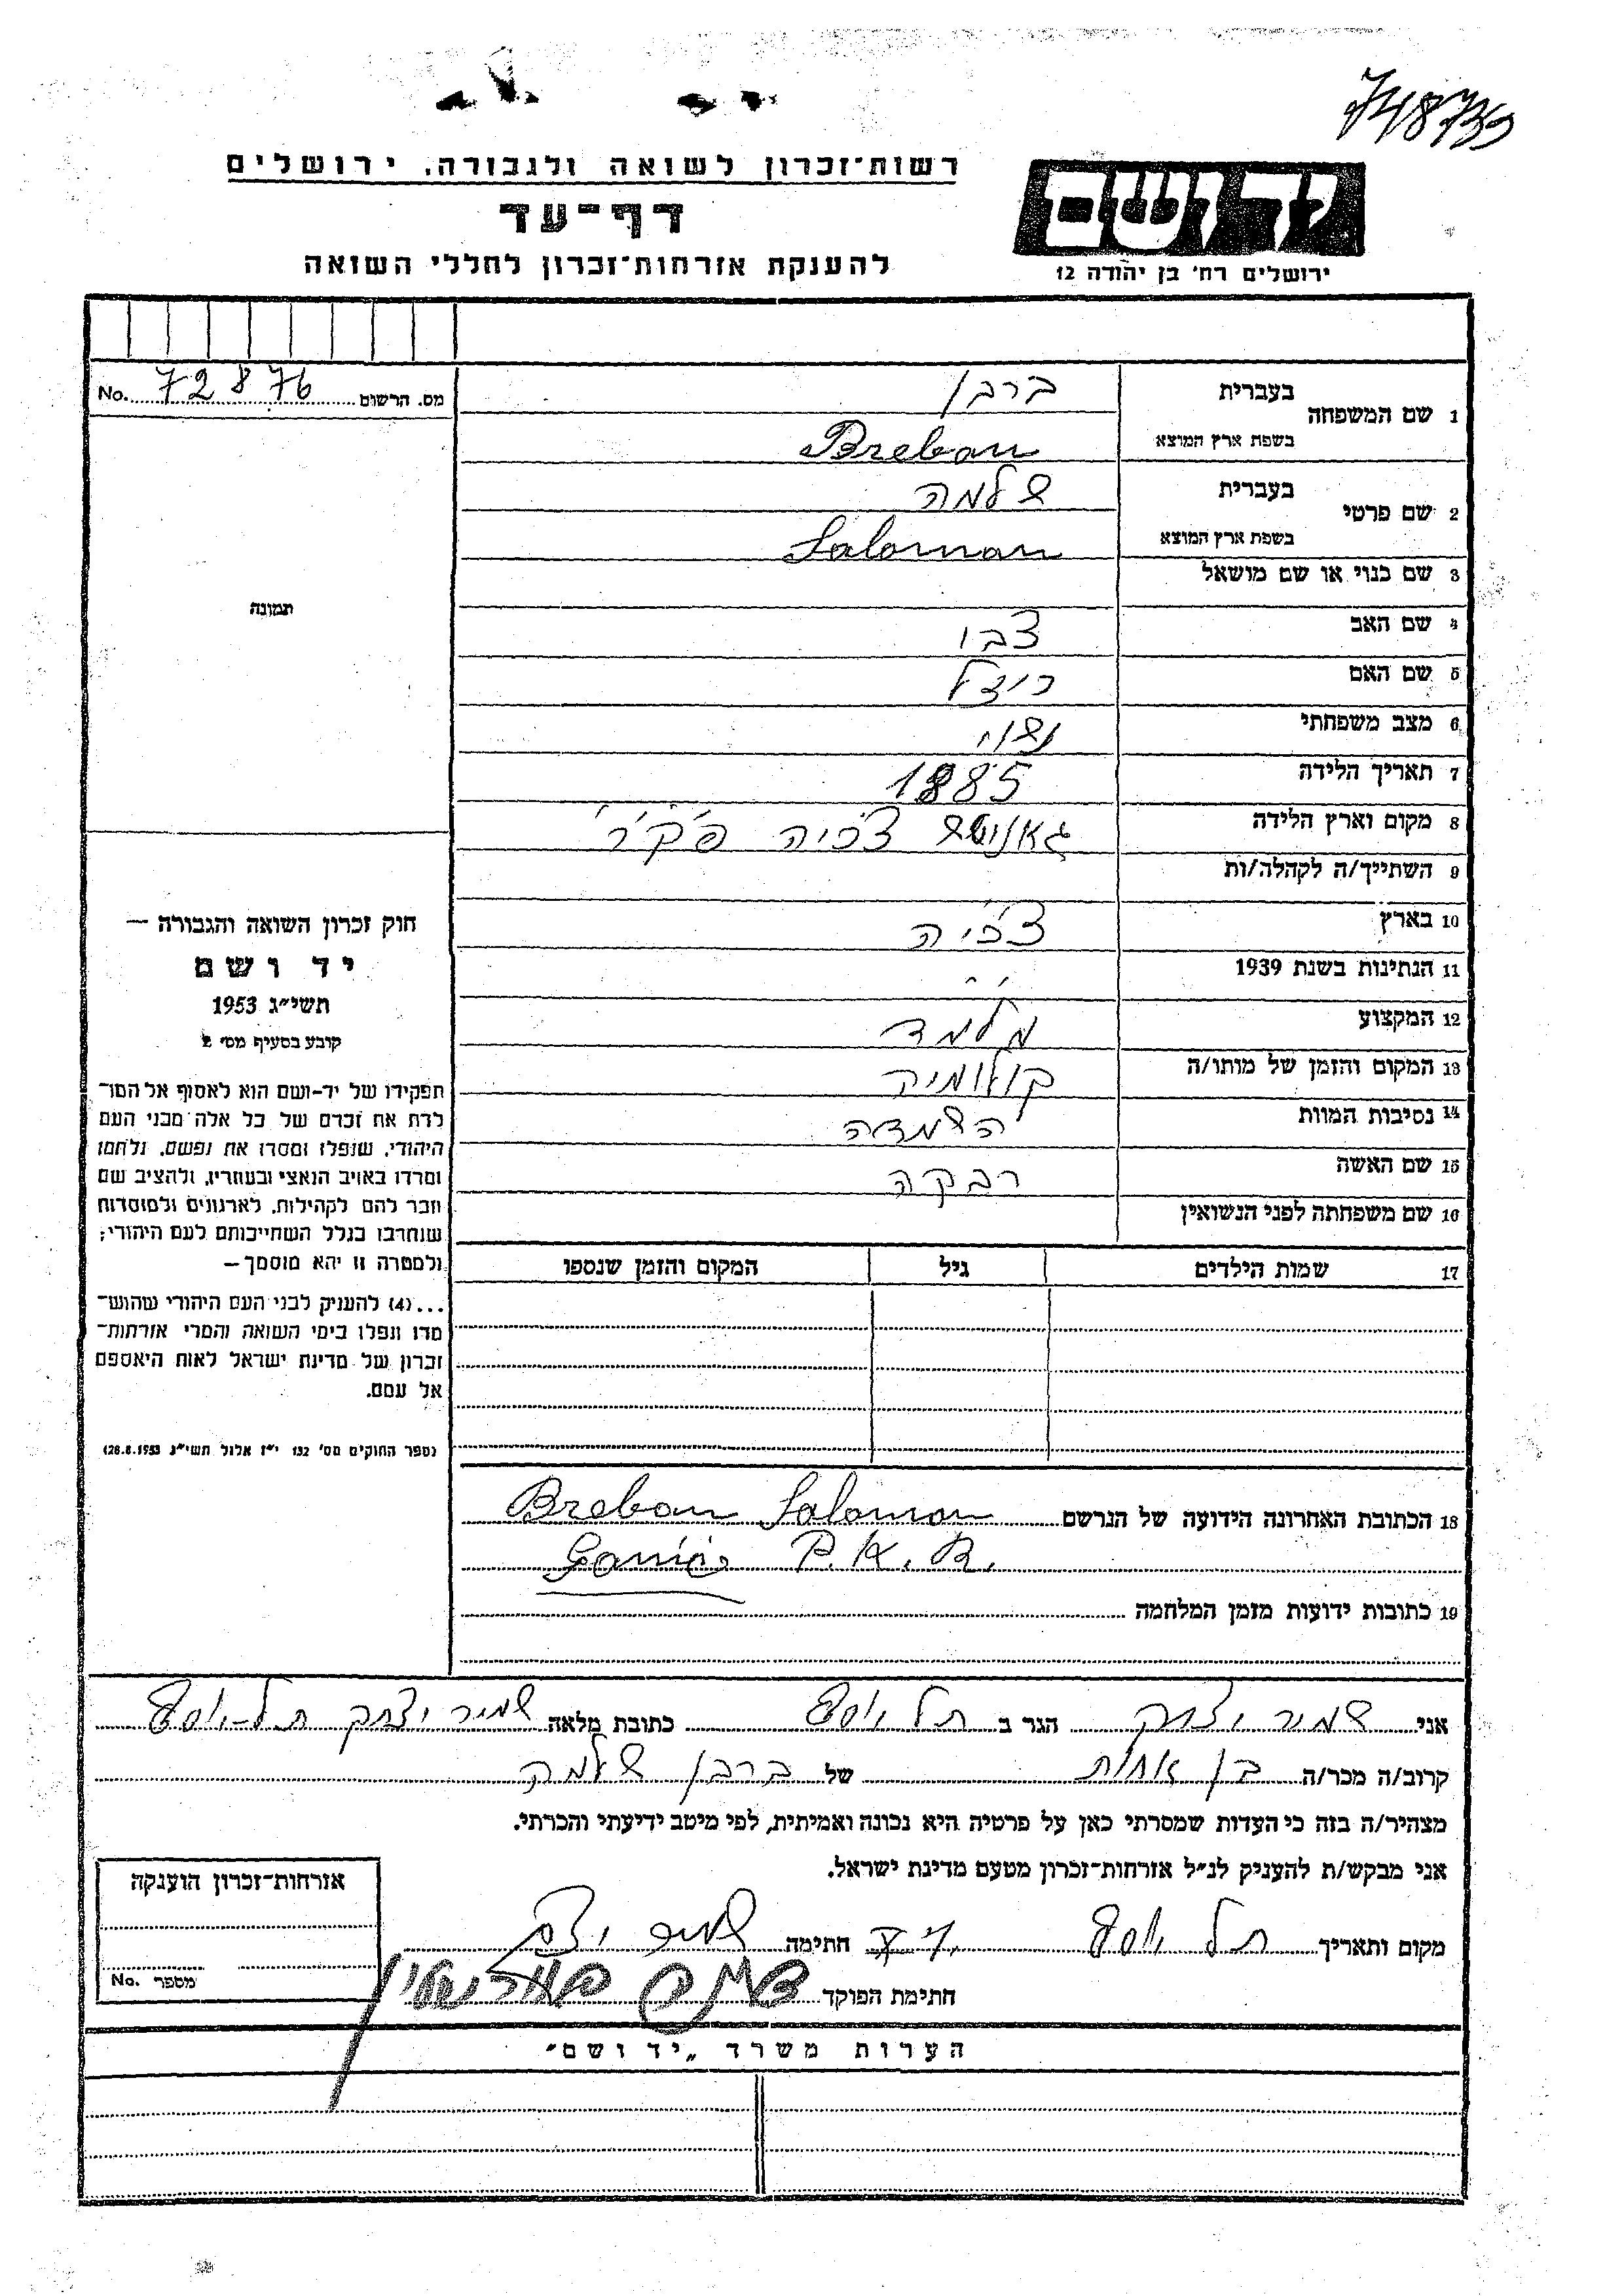 748739
רשות־זכרון לשואה ולגבורה, ירושלים
דף־עד
להענקת אזרחות־זכרון לחללי השואה
יד ושם
ירושלים רח' בן יהודה 12
מס. הרשום 72876 No.
תמונה
חוק זכרון השואה והגבורה —
יד ושם
תשי״ג 1953
קובע בסעיף מס׳ 2
תפקידו של יד-ושם הוא לאסוף אל המו־
לדת את זכרם של כל אלה מבני העם
היהודי, שנפלו ומסרו את נפשם, נלחמו
ומרדו באויב הנאצי ובעוזריו, ולהציב שם
וזכר להם לקהילות, לארגונים ולמוסדות
שנחרבו בגלל השתייכותם לעם היהודי;
ולמטרה זו יהא מוסמך —
...(4) להעניק לבני העם היהודי שהוש־
מדו ונפלו בימי השואה והמרי אזרחות־
זכרון של מדינת ישראל לאות היאספם
אל עמם.
(ספר החוקים מס׳ 132 י״ז אלול תשי״ג 28.8.1953)
1 שם המשפחה בעברית ברבן
בשפת ארץ המוצא Breban
2 שם פרטי בעברית שלמה
בשפת ארץ המוצא Saloman
3 שם כנוי או שם מושאל
4 שם האב צבי
5 שם האם רייצל
6 מצב משפחתי נשוי
7 תאריך הלידה 1885
8 מקום וארץ הלידה צ'כיה פ'ק'ר'
9 השתייך/ה לקהלה/ות
10 בארץ צ'כיה
11 הנתינות בשנת 1939 ״
12 המקצוע מלמד
13 המקום והזמן של מותו/ה קולומיה
14 נסיבות המוות השמדה
15 שם האשה רבקה
16 שם משפחתה לפני הנשואין
17 שמות הילדים גיל המקום והזמן שנספו
18 הכתובת האחרונה הידועה של הנרשם Breban Saloman
P.K.R.
19 כתובות ידועות מזמן המלחמה
אני שמיר יצחק הגר ב תל יוסף כתובת מלאה שמיר יצחק תל-יוסף
קרוב/ה מכר/ה בן אחות של ברבן שלמה
מצהיר/ה בזה כי העדות שמסרתי כאן על פרטיה היא נכונה ואמיתית, לפי מיטב ידיעתי והכרתי.
אני מבקש/ת להעניק לנ״ל אזרחות־זכרון מטעם מדינת ישראל.
מקום ותאריך תל יוסף חתימה שמיר יצחק
חתימת הפוקד
אזרחות־זכרון הוענקה
מספר No.
הערות משרד „יד ושם״